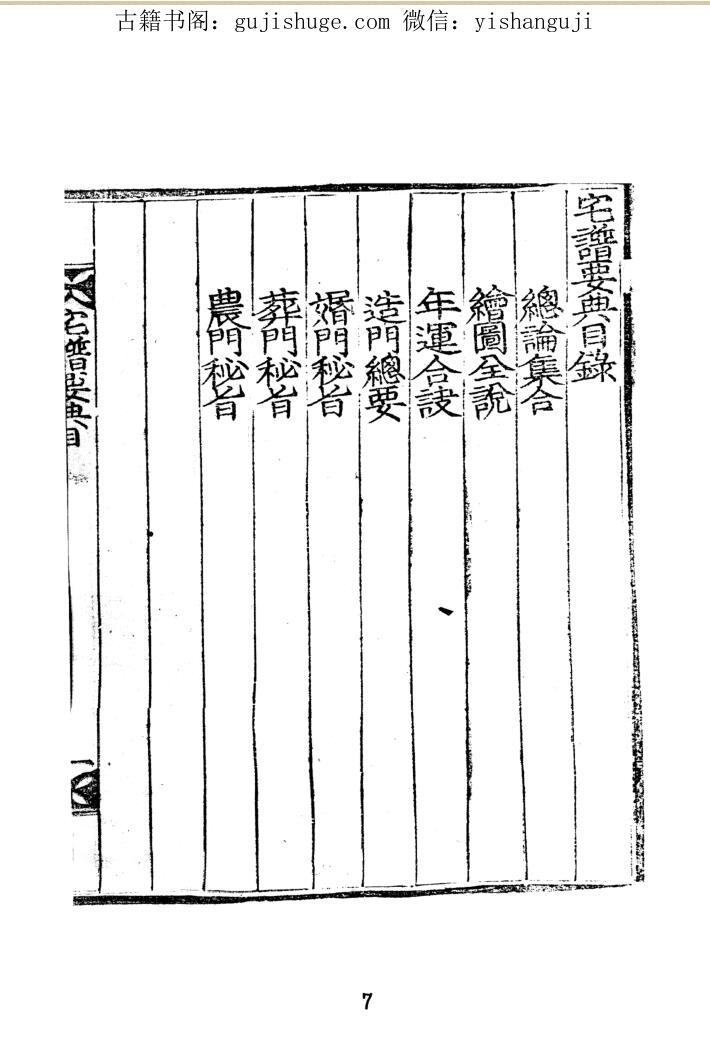 古籍书阁：gujishuge.com 微信：yishanguji
宅譜要典目錄
總論集合
繪圖全說
年運合訣
造門總要
婚門秘旨
葬門秘旨
農門秘旨
宅譜要典目
一
7